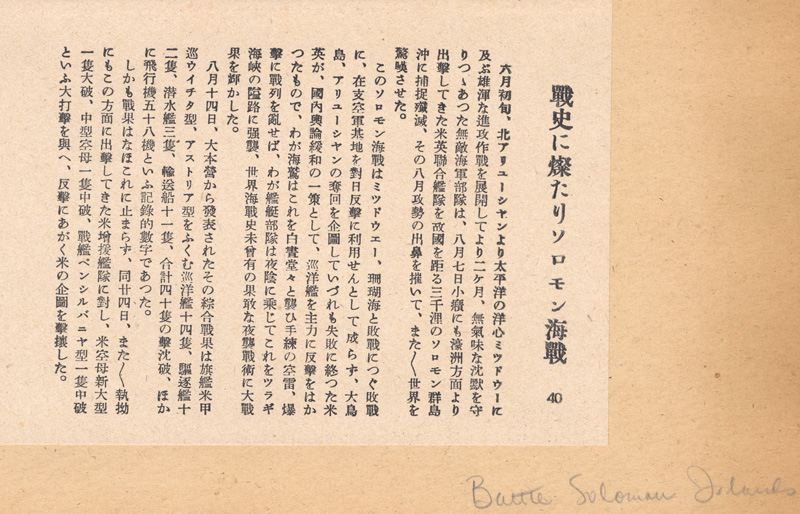 戰史に燦たりソロモン海戰
40
六月初旬、北アリューシヤンより太平洋の洋心ミツドウーに
及ぶ雄渾な進攻作戰を展開してより二ケ月、無氣味な沈默を守
りつゝあつた無敵海軍部隊は、八月七日小癪にも濠洲方面より
出擊してきた米英聯合艦隊を故國を距る三千浬のソロモン群島
沖に捕捉殲滅、その八月攻勢の出鼻を摧いて、また〱世界を
驚嘆させた。
このソロモン海戰はミツドウエー、珊瑚海と敗戰につぐ敗戰
に、在支空軍基地を對日反擊に利用せんとして成らず、大鳥
島、アリューシヤンの奪回を企圖していづれも失敗に終つた米
英が、國內輿論緩和の一策として、巡洋艦を主力に反擊をはか
つたもので、わが海鷲はこれを白晝堂々と襲ひ手練の空雷、爆
擊に戰列を亂せば、わが艦艇部隊は夜陰に乘じてこれをツラギ
海峽の隘路に强襲、世界海戰史未曾有の果敢な夜襲戰術に大戰
果を輝かした。
八月十四日、大本營から發表されたその綜合戰果は旗艦米甲
巡ウイチタ型、アストリア型をふくむ巡洋艦十四隻、驅逐艦十
二隻、潜水艦三隻、輸送船十一隻、合計四十隻の擊沈破、ほか
に飛行機五十八機といふ記錄的數字であつた。
しかも戰果はなほこれに止まらず、同廿四日、また〱執拗
にもこの方面に出擊してきた米增援艦隊に對し、米空母新大型
一隻大破、中型空母一隻中破、戰艦ペンシルバニヤ型一隻中破
といふ大打擊を與へ、反擊にあがく米の企圖を擊攘した。
Battle Soloman Islands